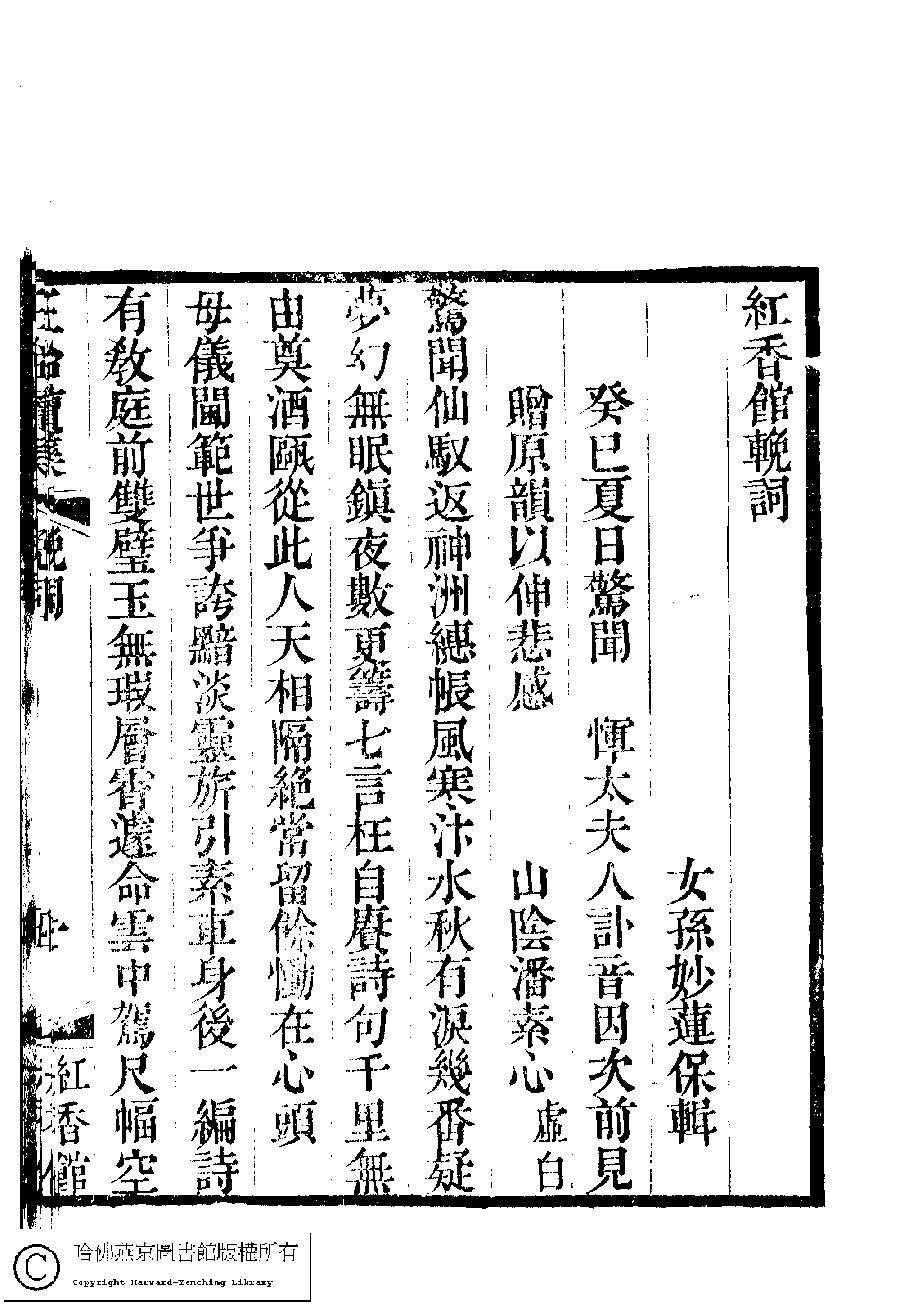 紅香館輓詞
女孫妙蓮保輯
癸巳夏日驚聞　惲太夫人訃音因次前見
贈原韻以伸悲感　山陰潘素心虛白
驚聞仙馭返神洲繐帳風寒汴水秋有淚幾番疑
夢幻無眠鎮夜數更籌七言枉自賡詩句千里無
由奠酒甌從此人天相隔絕常留餘慟在心頭
母儀閫範世爭誇黯淡靈旂引素車身後一編詩
有教庭前雙璧玉無瑕層霄遽命雲中駕尺幅空
輓詞
紅香館
哈佛燕京圖書館版權所有
Copyright Harvard-Yenching Library